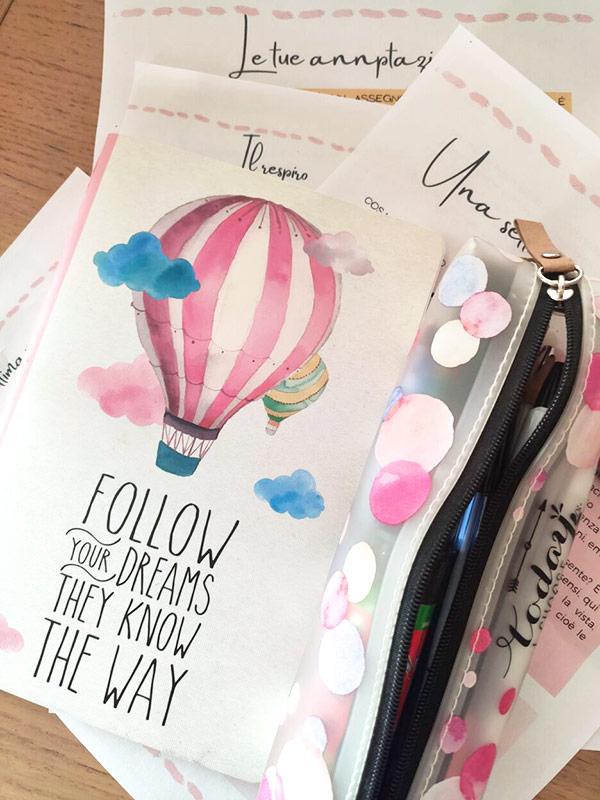 Le tue annptazi
ASSEGN
È
Il respiro
Una
COS
FOLLOW
YOUR DREAMS
THEY KNOW
THE WAY
today
sensi, qui
la vista
cioè le